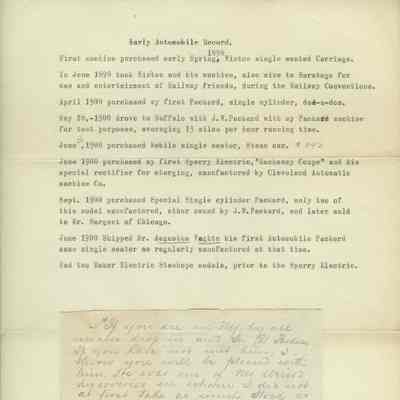 Early Automobile Record.
1898
First machine purchased early Spring, Winton single seated Carriage.
In June 1899 took Winton and his machine, also mine to Saratoga for
use and entertainment of Railway Friends, during the Railway Conventions.
April 1900 purchased my first Packard, single cylinder,
May 20,-1900 drove to Buffalo with J.W.Packard with my Packard machine
for test purposes, averaging 15 miles per hour running time.
June ,1900 purchased Mobile single seater, Steam car.
June 1900 purchased my first Sperry Electric,"Hackaway Coupe" and his
special rectifier for charging, manufactured by Cleveland Automatic
machine Co.
Sept. 1900 purchased Special Single cylinder Packard, only two of
this model manufactured, other owned by J.W.Packard, and later sold
to Mr. Sargent of Chicago.
June 1900 Shipped Mr. his first Automobile Packard
same single seater as regularly manufactured at that time.
Had two Baker Electric Stanhope models, prior to the Sperry Electric.
If you are by all
means drop in and
If you have not met him, I
know you will be pleased with
him. He was one of
discoveries did not
at first take as much stock as